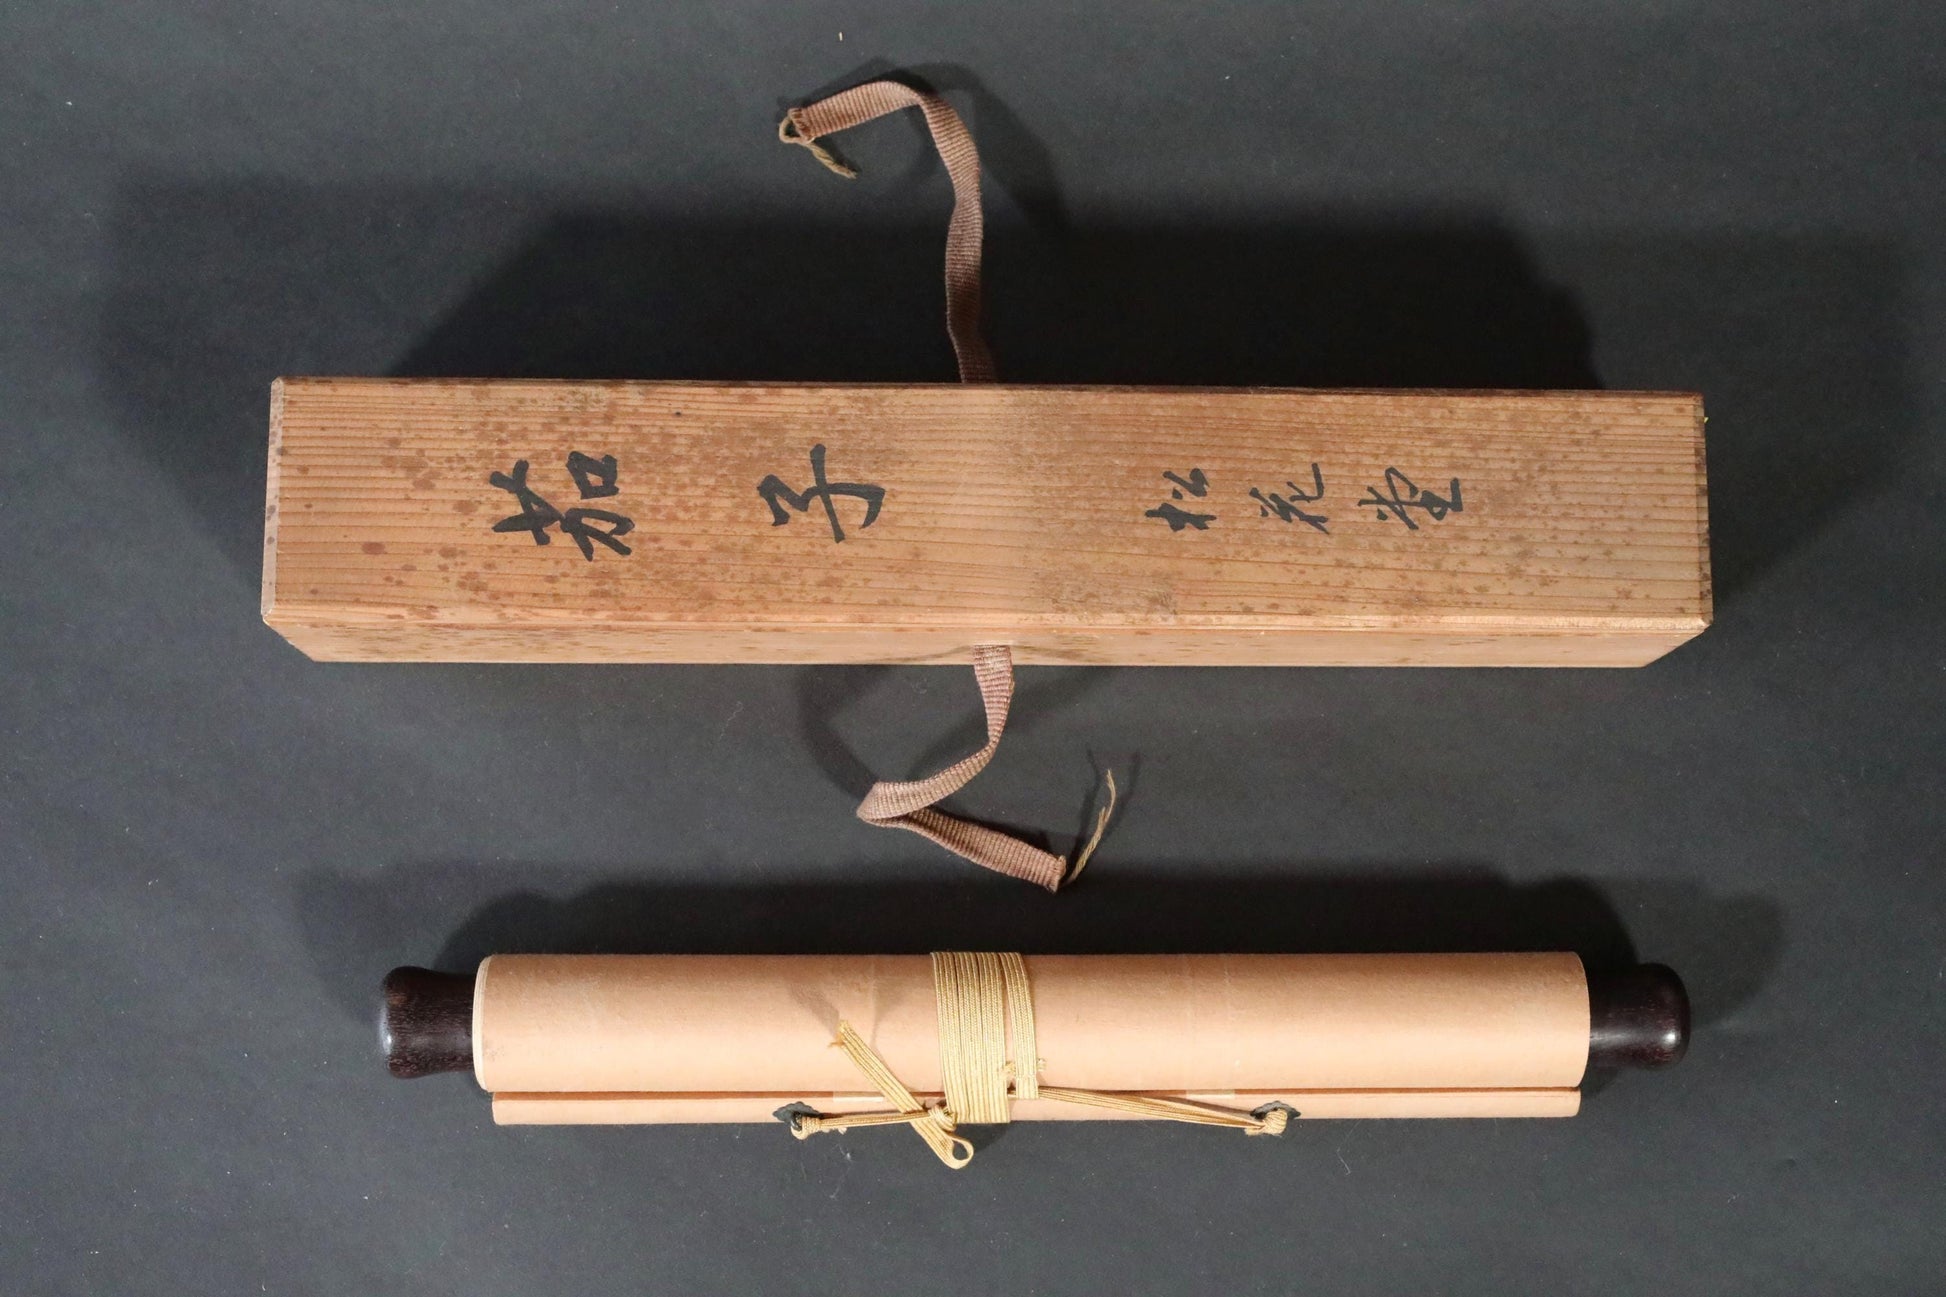 茄子 松花堂